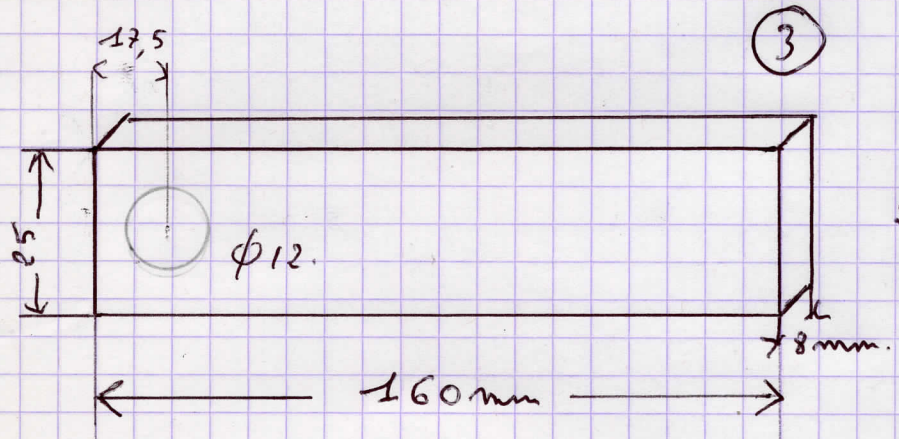 3
17,5
25
φ12.
8mm.
160mm